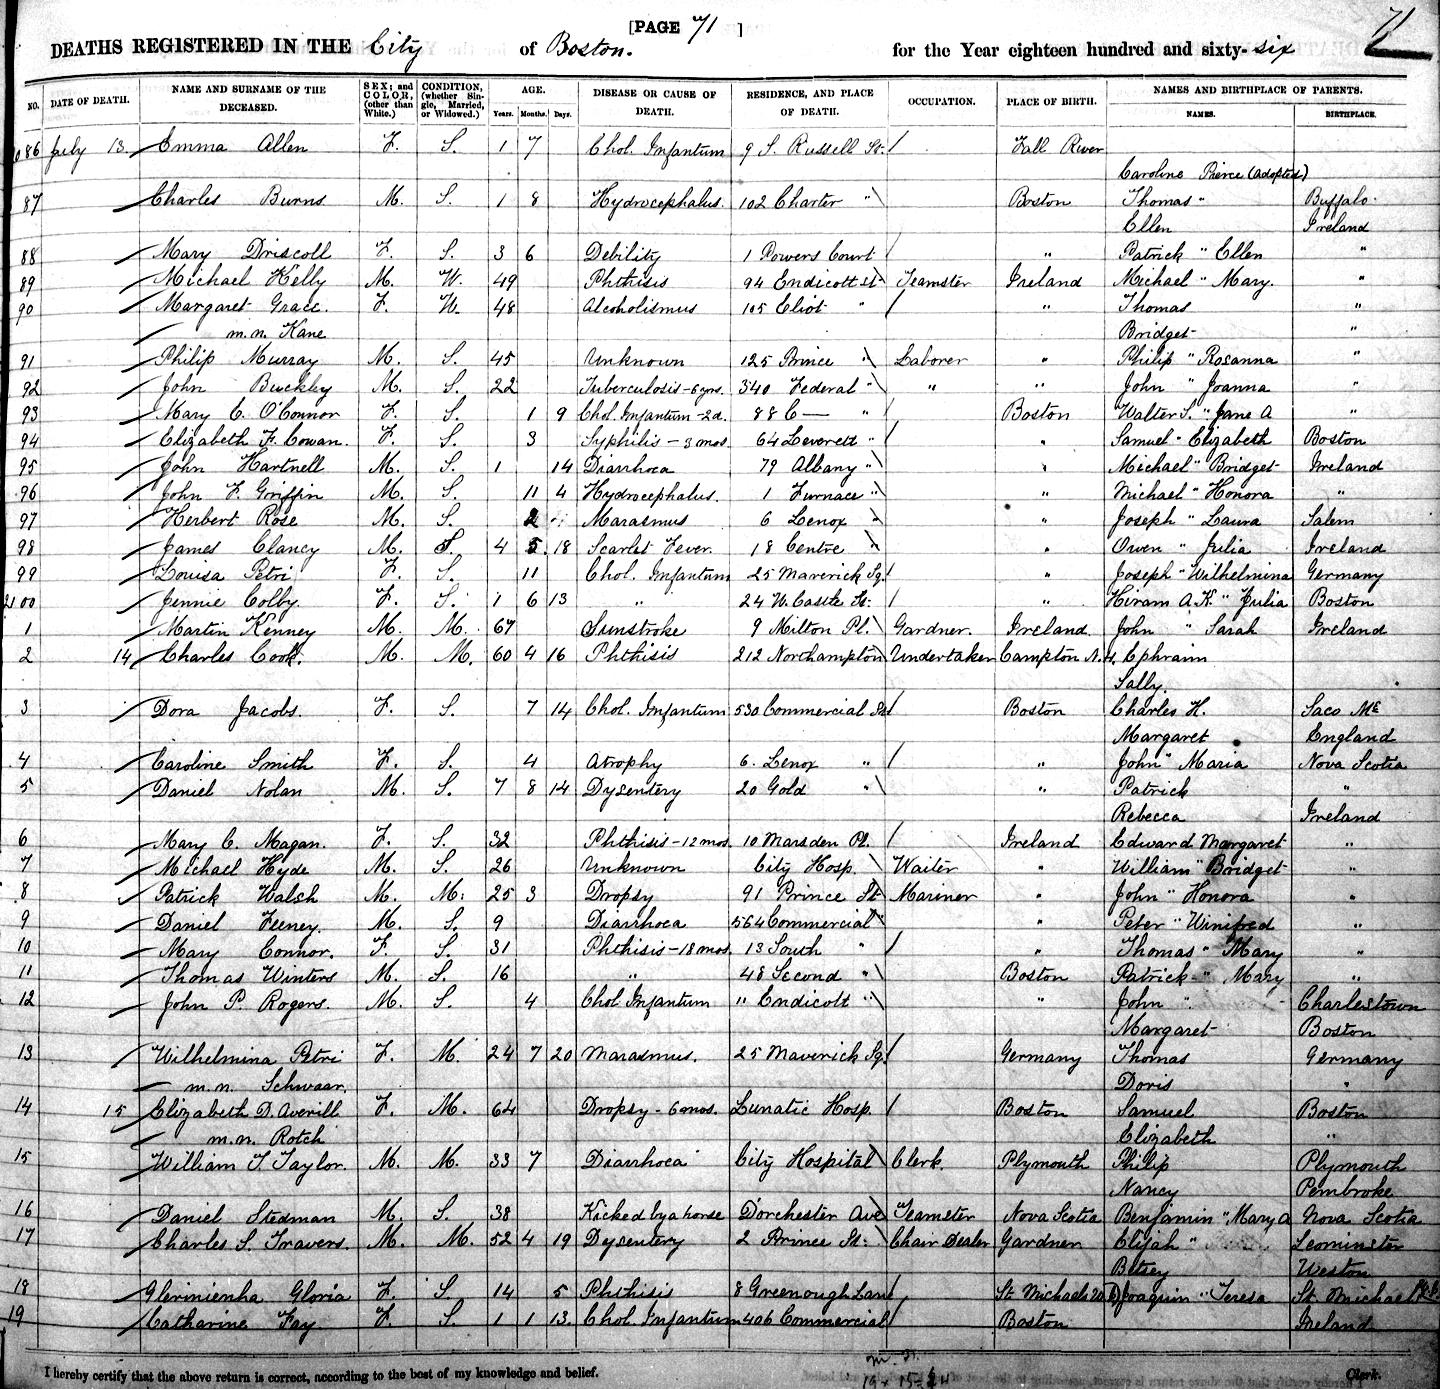 [PAGE 71 ]
71
DEATHS REGISTERED IN THE City of Boston. for the Year eighteen hundred and sixty-six
NO. DATE OF DEATH. NAME AND SURNAME OF THE DECEASED. SEX; and COLOR, (other than White.) CONDITION, (whether Single, Married, or Widowed.) AGE. Years. Months. Days. DISEASE OR CAUSE OF DEATH. RESIDENCE, AND PLACE OF DEATH. OCCUPATION. PLACE OF BIRTH. NAMES AND BIRTHPLACE OF PARENTS. NAMES. BIRTHPLACE.
86 July 13. Emma Allen F. S. 1 7 Chol. Infantum 9 S. Russell St. Fall River
Caroline Pierce (adopted)
87 Charles Burns M. S. 1 8 Hydrocephalus. 102 Charter " Boston Thomas " Buffalo.
Ellen Ireland
88 Mary Driscoll F. S. 3 6 Debility 1 Powers Court " Patrick " Ellen "
89 Michael Kelly M. W. 49 Phthisis 94 Endicott St Teamster Ireland Michael " Mary. "
90 Margaret Grace. F. W. 48 Alcoholismus 105 Eliot " " Thomas "
m.n. Kane Bridget "
91 Philip Murray M. S. 45 Unknown 125 Prince " Laborer " Philip " Rosanna "
92 John Buckley M. S. 22 Tuberculosis - 6 yrs. 340 Federal " " " John " Joanna "
93 Mary C. O'Connor F. S. 1 9 Chol. Infantum - 2d. 88 C — " Boston Walter S. " Jane A "
94 Elizabeth F. Cowan. F. S. 3 Syphilis - 3 mos. 64 Leverett " " Samuel " Elizabeth Boston
95 John Hartnell M. S. 1 14 Diarrhoea 79 Albany " " Michael " Bridget Ireland
96 John F. Griffin M. S. 11 4 Hydrocephalus. 1 Furnace " " Michael " Honora "
97 Herbert Rose M. S. 2 Marasmus 6 Lenox " " Joseph " Laura Salem
98 James Clancy M. S. 4 5 18 Scarlet Fever. 18 Centre " " Owen " Julia Ireland
99 Louisa Petri F. S. 11 Chol. Infantum 25 Maverick Sq. " Joseph " Wilhelmina Germany
2100 Jennie Colby. F. S. 1 6 13 " 24 W. Castle St. " Hiram A. K. " Julia Boston
1 Martin Kenney M. M. 67 Sunstroke 9 Milton Pl. Gardner. Ireland. John " Sarah Ireland
2 14 Charles Cook. M. M. 60 4 16 Phthisis 212 Northampton Undertaker Campton N.H. Ephraim
Sally.
3 Dora Jacobs. F. S. 7 14 Chol. Infantum 530 Commercial St Boston Charles H. Saco Me
Margaret England
4 Caroline Smith F. S. 4 Atrophy 6. Lenox " " John " Maria Nova Scotia
5 Daniel Nolan M. S. 7 8 14 Dysentery 20 Gold " " Patrick "
Rebecca Ireland
6 Mary C. Magan. F. S. 32 Phthisis - 12 mos. 10 Marsden Pl. Ireland Edward Margaret "
7 Michael Hyde M. S. 26 Unknown City Hosp. Waiter " William " Bridget "
8 Patrick Walsh M. M. 25 3 Dropsy 91 Prince St Mariner " John " Honora "
9 Daniel Feeney. M. S. 9 Diarrhoea 564 Commercial " " Peter " Winifred "
10 Mary Connor. F. S. 31 Phthisis - 18 mos. 13 South " " Thomas " Mary "
11 Thomas Winters M. S. 16 " 48 Second " Boston Patrick " Mary "
12 John P. Rogers. M. S. 4 Chol. Infantum " Endicott " " John " Charlestown
Margaret Boston
13 Wilhelmina Petri F. M. 24 7 20 Marasmus. 25 Maverick Sq. Germany Thomas Germany
m.n. Schwaar. Doris "
14 15 Elizabeth D. Averill F. M. 64 Dropsy - 6 mos. Lunatic Hosp. Boston Samuel Boston
m.n. Rotch Elizabeth "
15 William T. Taylor. M. M. 33 7 Diarrhoea City Hospital Clerk. Plymouth Philip Plymouth
Nancy Pembroke
16 Daniel Stedman M. S. 38 Kicked by a horse Dorchester Ave Teamster Nova Scotia Benjamin " Mary A Nova Scotia
17 Charles S. Travers. M. M. 52 4 19 Dysentery 2 Prince St. Chair Dealer Gardner Elijah " Leominster
Betsey Weston
18 Gloria F. S. 14 5 Phthisis 8 Greenough Lane St. Michaels W.I. Joaquin " Teresa St. Michael
19 Catharine Fay F. S. 1 1 13. Chol. Infantum 406 Commercial Boston Ireland
I hereby certify that the above return is correct, according to the best of my knowledge and belief. Clerk.